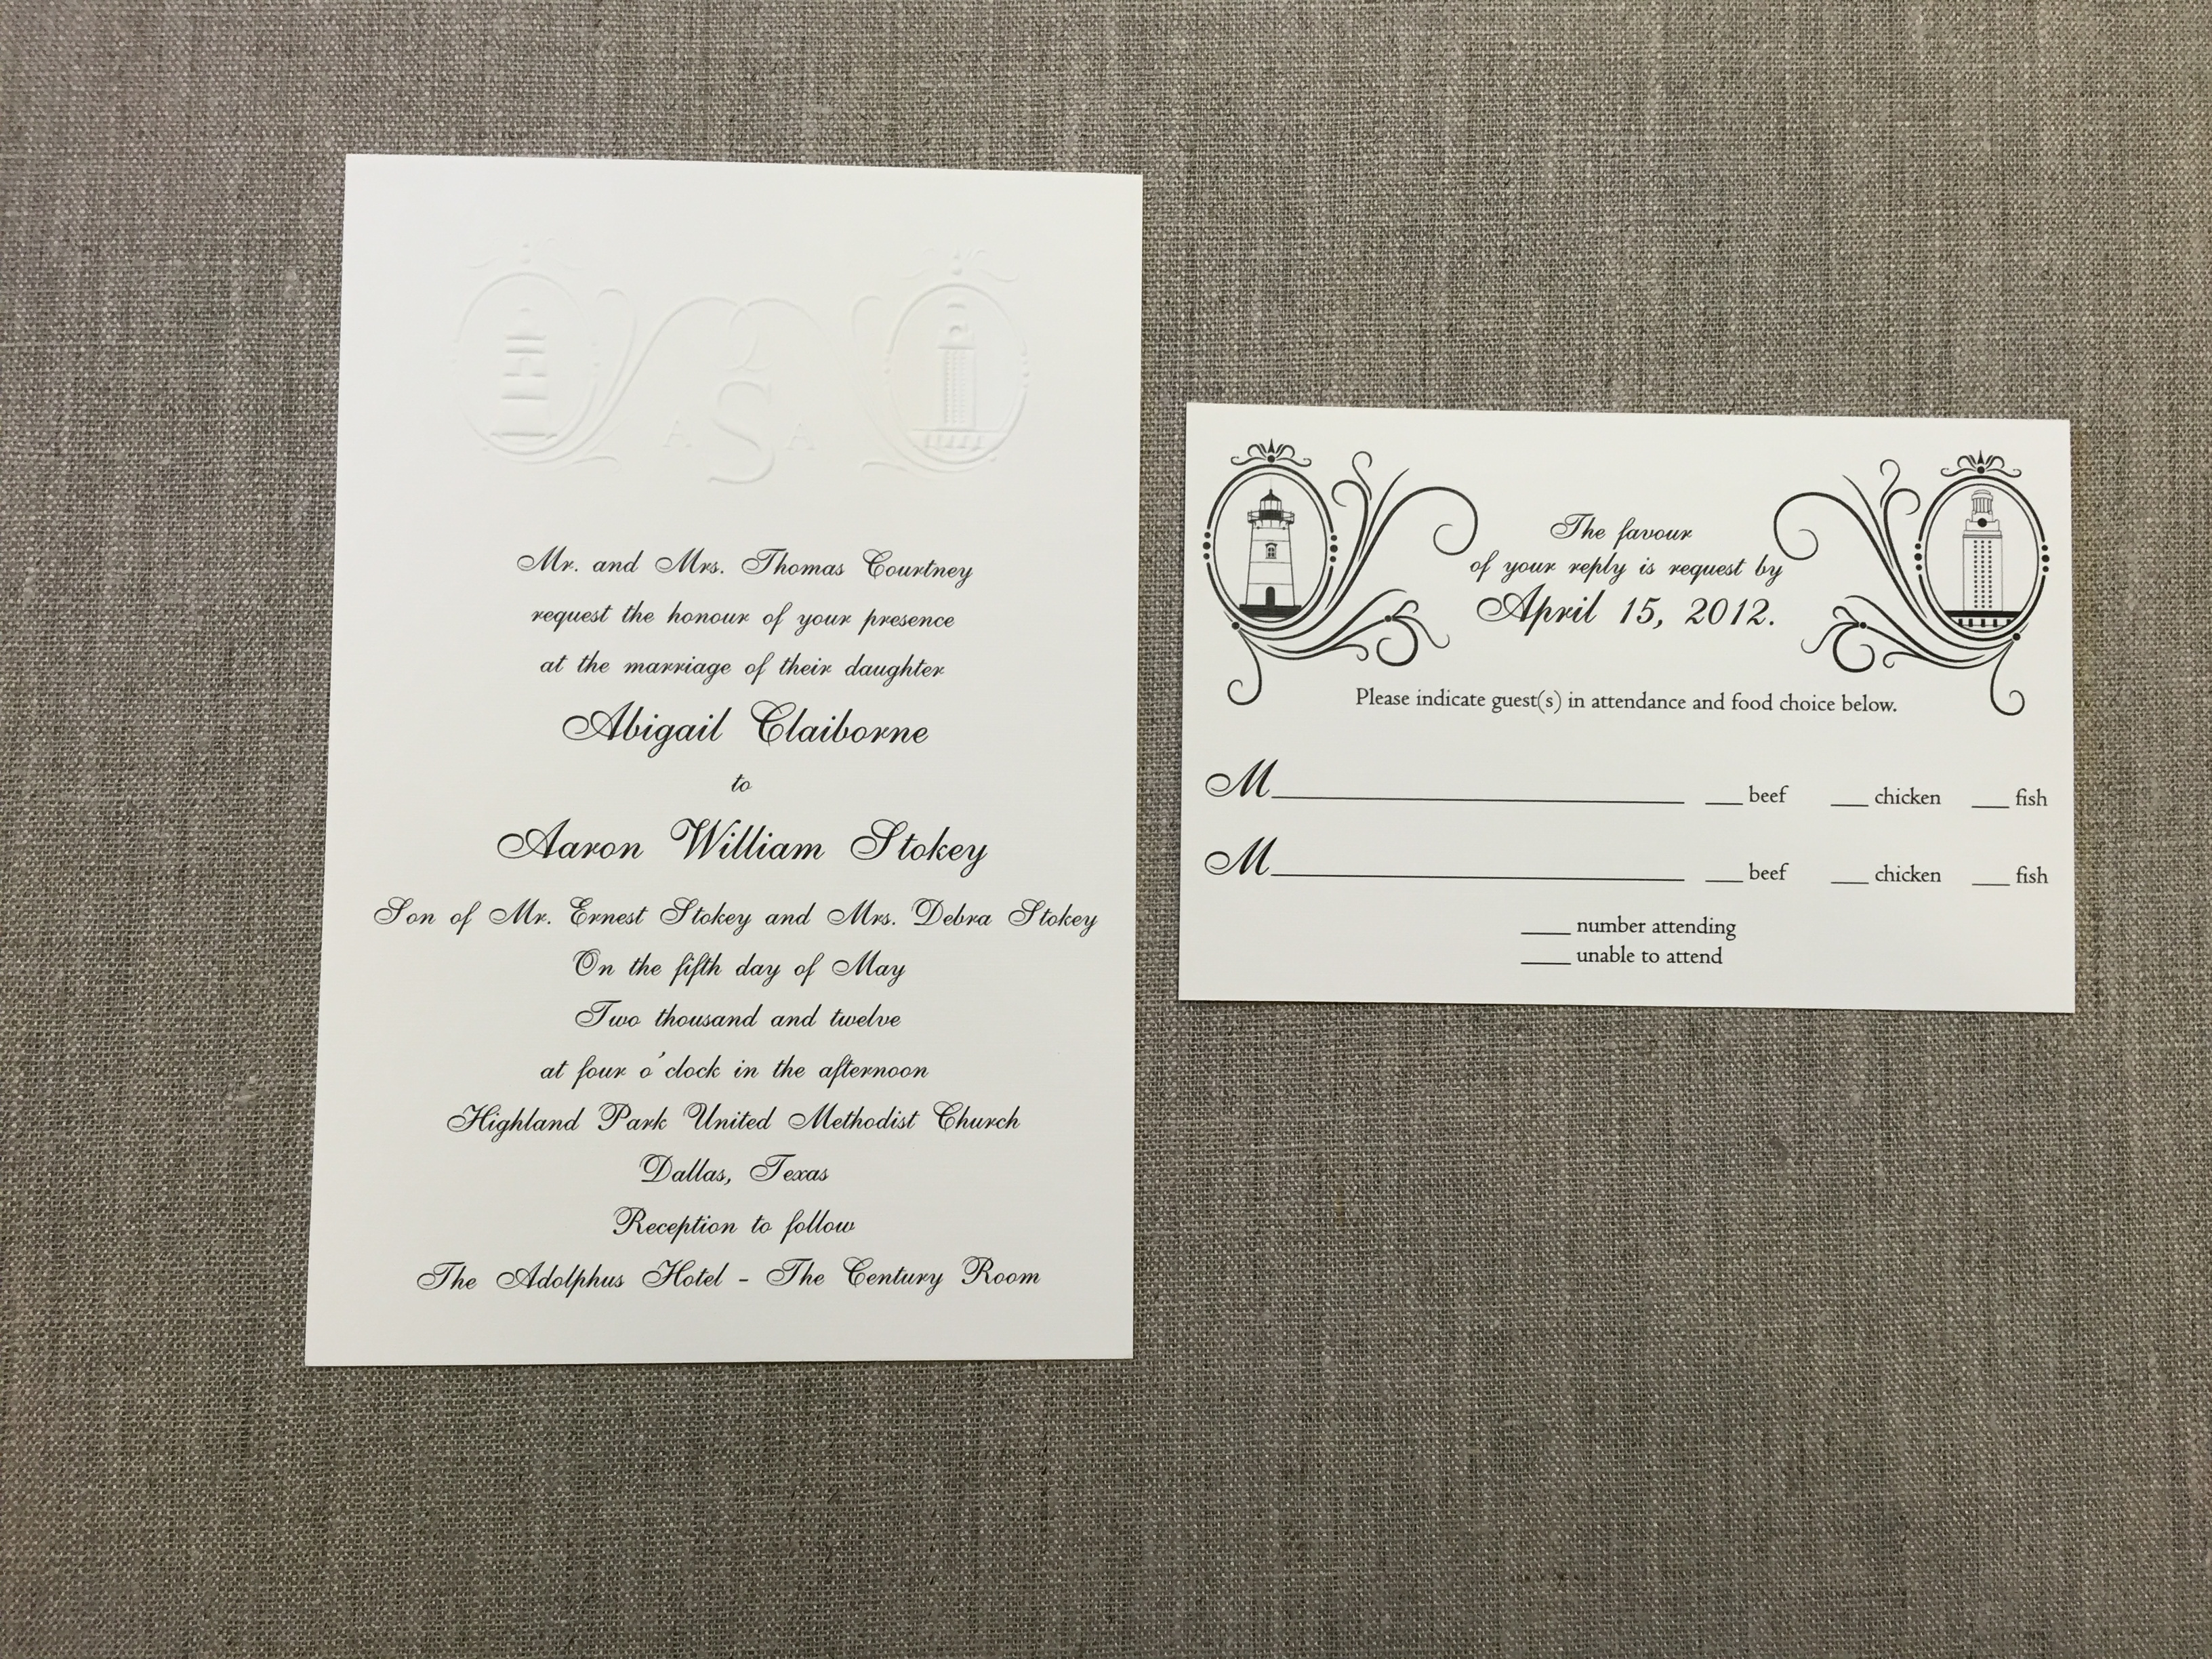 A S A
Mr. and Mrs. Thomas Courtney
request the honour of your presence
at the marriage of their daughter
Abigail Claiborne
to
Aaron William Stokey
Son of Mr. Ernest Stokey and Mrs. Debra Stokey
On the fifth day of May
Two thousand and twelve
at four o'clock in the afternoon
Highland Park United Methodist Church
Dallas, Texas
Reception to follow
The Adolphus Hotel - The Century Room
The favour
of your reply is request by
April 15, 2012.
Please indicate guest(s) in attendance and food choice below.
M____ ___ beef ___ chicken ___ fish
M____ ___ beef ___ chicken ___ fish
____ number attending
____ unable to attend